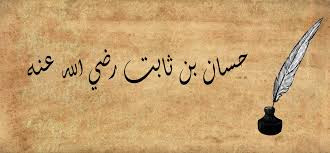 حسان بن ثابت رضي الله عنه